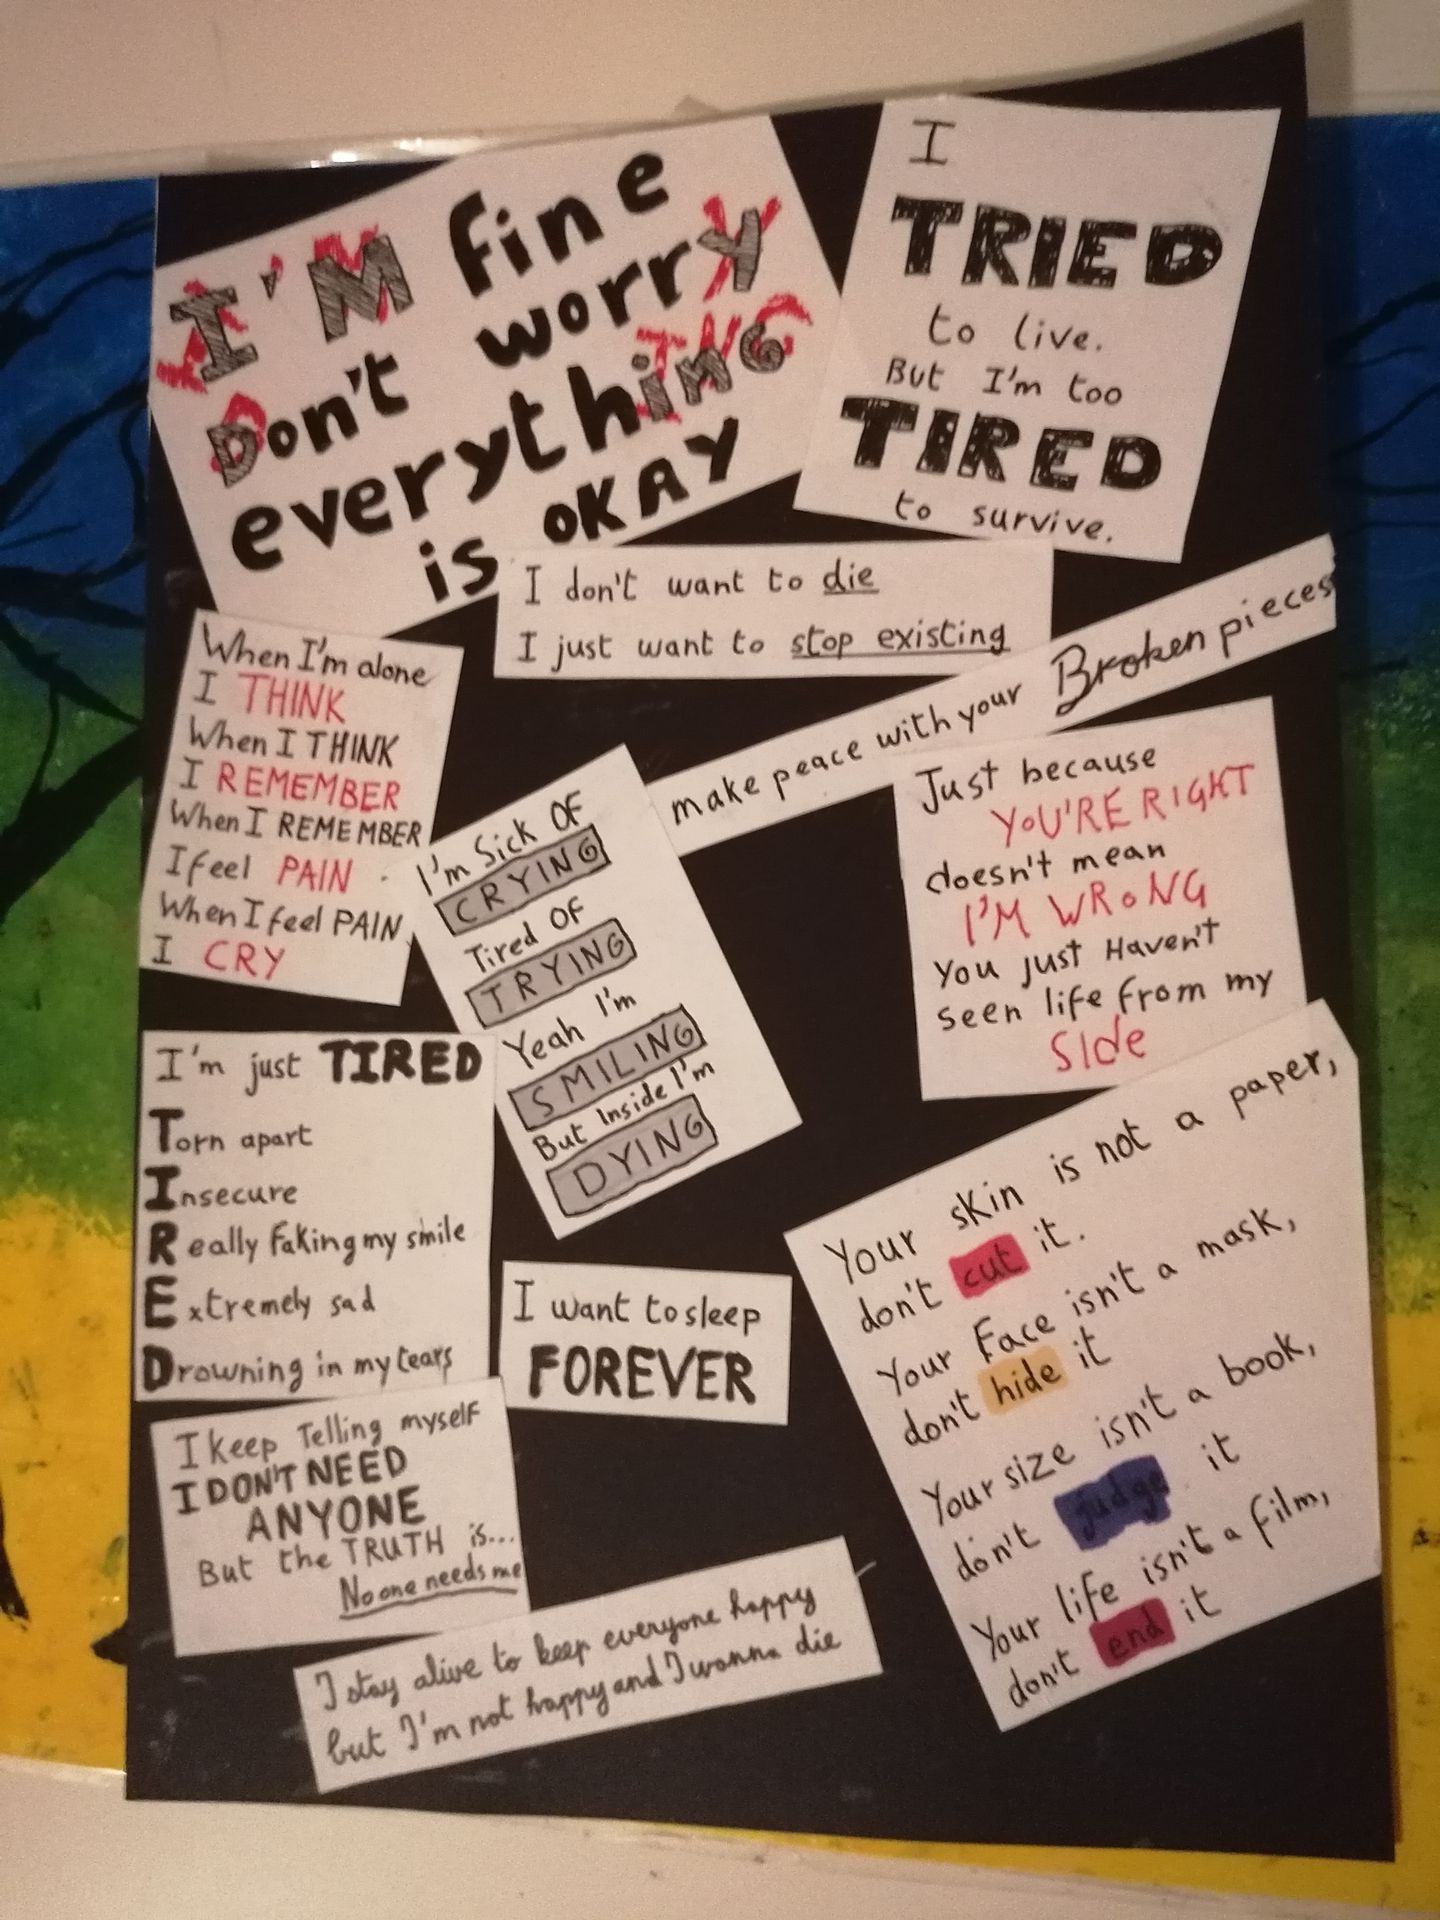 I'M fine
Don't worry
everything
is OKAY
I
TRIED
to live.
But I'm too
TIRED
to survive.
I don't want to die
I just want to stop existing
make peace with your Broken pieces
When I'm alone
I THINK
When I THINK
I REMEMBER
When I REMEMBER
I feel PAIN .
When I feel PAIN
I CRY
I'm Sick OF
CRYING
Tired OF
TRYING
Yeah I'm
SMILING
But Inside I'm
DYING
Just because
YOU'RE RIGHT
doesn't mean
I'M WRONG
you just Haven't
seen life from my
SIde
I'm just TIRED
Torn apart
Insecure
Really faking my smile
Extremely sad
Drowning in my tears
I want to sleep
FOREVER
Your skin is not a paper,
don't cut it.
Your Face isn't a mask,
don't hide it
Your size isn't a book,
don't judge it
Your life isn't a film,
don't end it
I keep Telling myself
I DON'T NEED
ANYONE
But the TRUTH is...
No one needs me
I stay alive to keep everyone happy
but I'm not happy and I wanna die